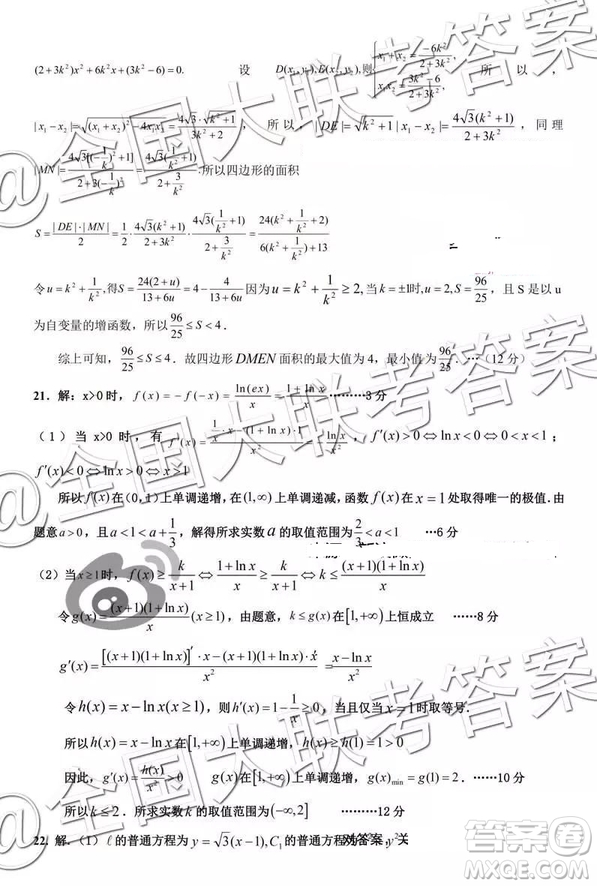 (2+3k²)x²+6k²x+(3k²-6)=0. 设 D(x₁,y₁),E(x₂,y₂),则 { x₁+x₂=-6k²/(2+3k²) x₁x₂=(3k²-6)/(2+3k²) 所以,
|x₁-x₂|=√((x₁+x₂)²-4x₁x₂)=4√3·√(k²+1)/(3k²+2), 所以,|DE|=√(k²+1)|x₁-x₂|=4√3(k²+1)/(2+3k²),同理
|MN|=4√3[(-1/k)²+1]/(2+3(-1/k)²)=4√3(1/k²+1)/(2+3/k²).所以四边形的面积
S=|DE|·|MN|/2=1/2·4√3(k²+1)/(2+3k²)·4√3(1/k²+1)/(2+3/k²)=24(k²+1/k²+2)/(6(k²+1/k²)+13)
令u=k²+1/k²,得S=24(2+u)/(13+6u)=4-4/(13+6u) 因为u=k²+1/k²≥2,当k=±1时,u=2,S=96/25,且 S 是以 u
为自变量的增函数,所以96/25≤S<4.
综上可知,96/25≤S≤4.故四边形 DMEN 面积的最大值为 4,最小值为96/25.…(12 分)
21. 解:x>0 时,f(x)=-f(-x)=ln(ex)/x=(1+ln x)/x ………3 分
(1)当 x>0 时,有 f′(x)=(1/x·x-(1+ln x)·1)/x²=-ln x/x²,f′(x)>0⇔ln x<0⇔0<x<1;
f′(x)<0⇔ln x>0⇔x>1
所以f(x)在(0,1)上单调递增,在(1,∞)上单调递减,函数f(x)在x=1处取得唯一的极值.由
题意a>0,且a<1<a+1/3,解得所求实数a的取值范围为2/3<a<1 …6 分
(2)当x≥1时,f(x)≥k/(x+1)⇔(1+ln x)/x≥k/(x+1)⇔k≤(x+1)(1+ln x)/x
令g(x)=(x+1)(1+ln x)/x(x≥1),由题意,k≤g(x)在[1,+∞)上恒成立 ……8 分
g′(x)=([(x+1)(1+ln x)]′·x-(x+1)(1+ln x)·x′)/x²=(x-ln x)/x²
令h(x)=x-ln x(x≥1),则h′(x)=1-1/x≥0,当且仅当x=1时取等号.
所以h(x)=x-ln x在[1,+∞)上单调递增,h(x)≥h(1)=1>0
因此,g′(x)=h(x)/x²>0 g(x)在[1,+∞)上单调递增,g(x)min=g(1)=2.…10 分
所以k≤2.所求实数k的取值范围为(-∞,2] ………12 分
22. 解.(1)ℓ的普通方程为y=√3(x-1),C₁的普通方程为
@全国大联考答案
答案圈